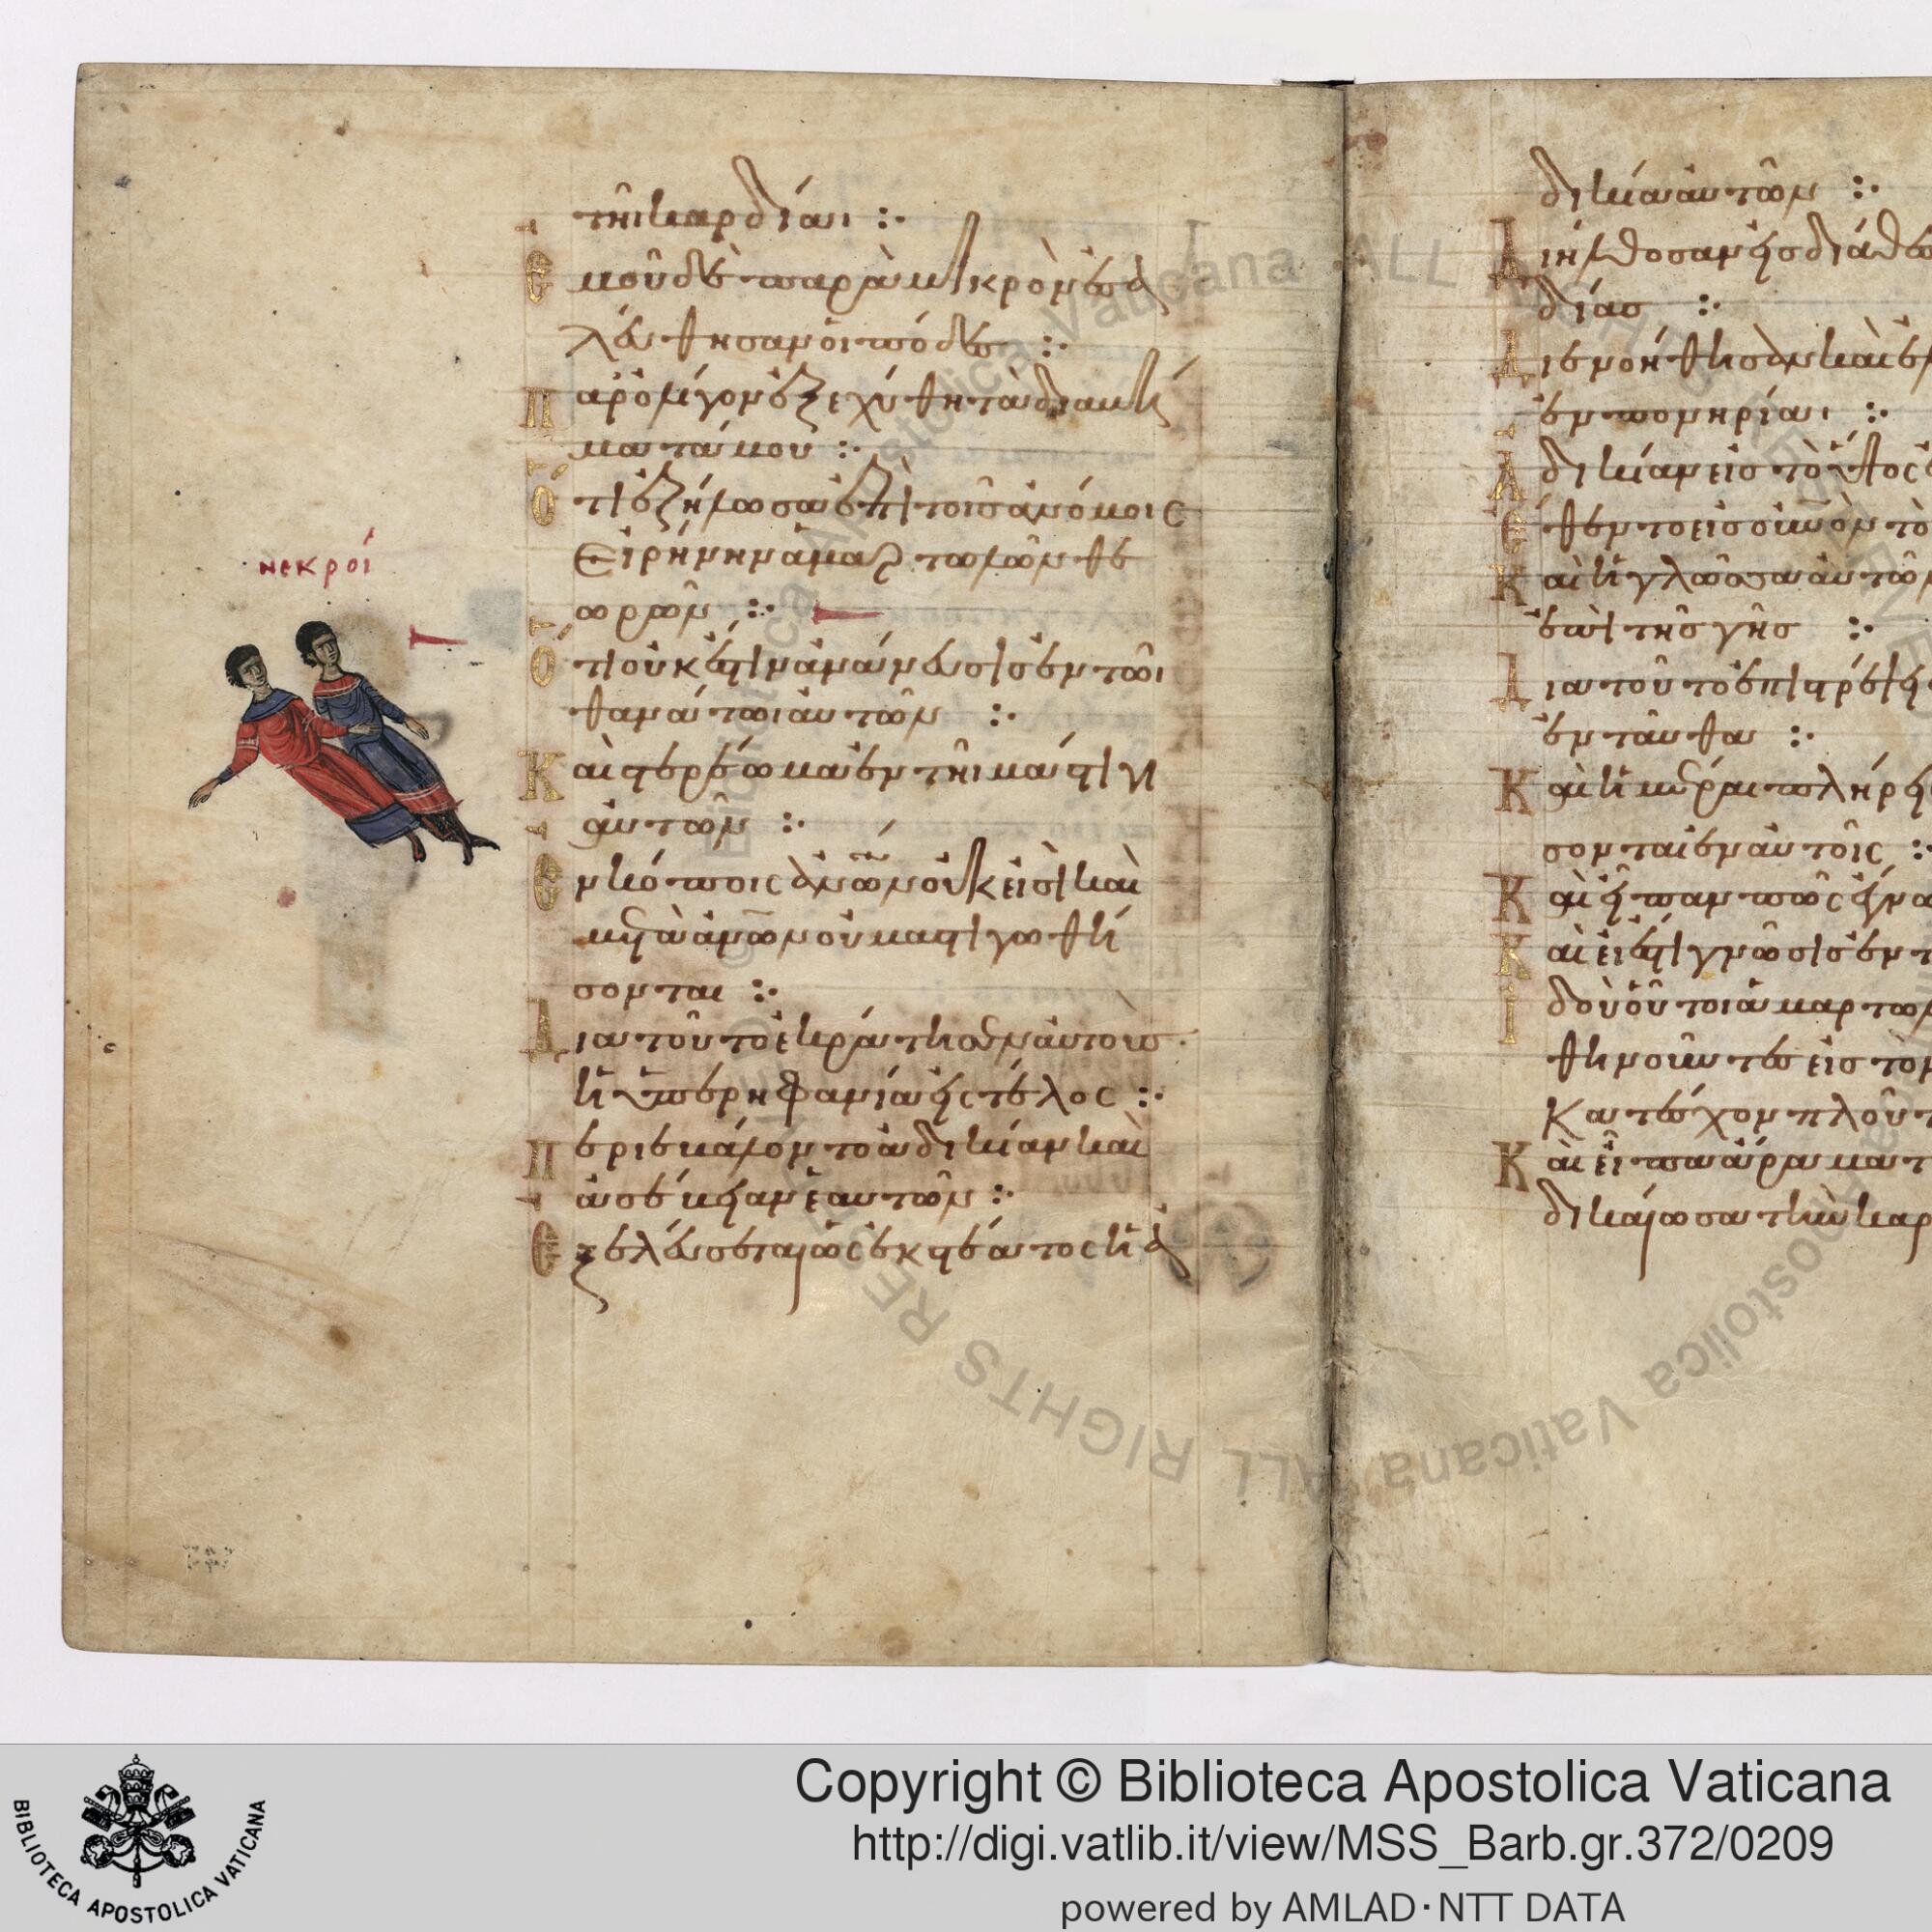 τῆι καρδίαι :·
Ἐμοῦ δὲ παρὰ μικρὸν ἐσα
λεύθησαν οἱ πόδες :·
Παρ ὀλίγον ἐξεχύθη τὰ διαβή
ματά μου :·
Ὅτι ἐζήλωσα ἐπὶ τοῖς ἀνόμοις
εἰρήνην ἁμαρτωλῶν θε
ωρῶν :·
νεκροί
Ὅτι οὐκ ἔστιν ἀνάνευσις ἐν τῶι
θανάτωι αὐτῶν :·
Καὶ στερέωμα ἐν τῆι μάστιγι
αὐτῶν :·
Ἐν κόποις ἀν͞ων οὐκ εἰσὶ καὶ
μετὰ ἀν͞ων οὐ μαστιγωθή
σονται :·
Διὰ τοῦτο ἐκράτησεν αὐτοὺς
ἡ ὑπερηφανία εἰς τέλος :·
Περιεβάλοντο ἀδικίαν καὶ
ἀσέβειαν ἑαυτῶν :·
Ἐξελεύσεται ὡς ἐκ στέατος ἡ ἀ
δικία αὐτῶν :·
Διήλθοσαν εἰς διάθε
σιν
δίας :·
Διενοήθησαν καὶ ἐλ
ἐν πονηρίαι :·
Ἀδικίαν εἰς τὸ ὕψος ἐ
Ἔθεντο εἰς οὐ͞νον τὸ
Καὶ ἡ γλῶσσα αὐτῶν
ἐπὶ τῆς γῆς :·
Διὰ τοῦτο ἐπιστρέψει
ἐνταῦθα :·
Καὶ ἡμέραι πλήρει
σονται ἐν αὐτοῖς :·
Καὶ εἶπαν πῶς ἔγνω
Καὶ εἰ ἔστι γνῶσις ἐν τ
Ἰδοὺ οὗτοι ἁμαρτωλ
θηνοῦντες εἰς τὸν
κατέσχον πλούτ
Καὶ εἶπα ἄρα ματ
δικαίωσα τὴν καρ
Copyright © Biblioteca Apostolica Vaticana
http://digi.vatlib.it/view/MSS_Barb.gr.372/0209
powered by AMLAD·NTT DATA
BIBLIOTECA APOSTOLICA VATICANA